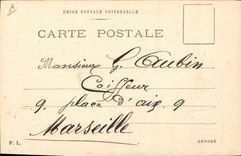 UNION POSTALE UNIVERSELLE
CARTE POSTALE
Monsieur G. Aubin
Coiffeur
9. place d'aix. 9
Marseille
P. L. DÉPOSÉ